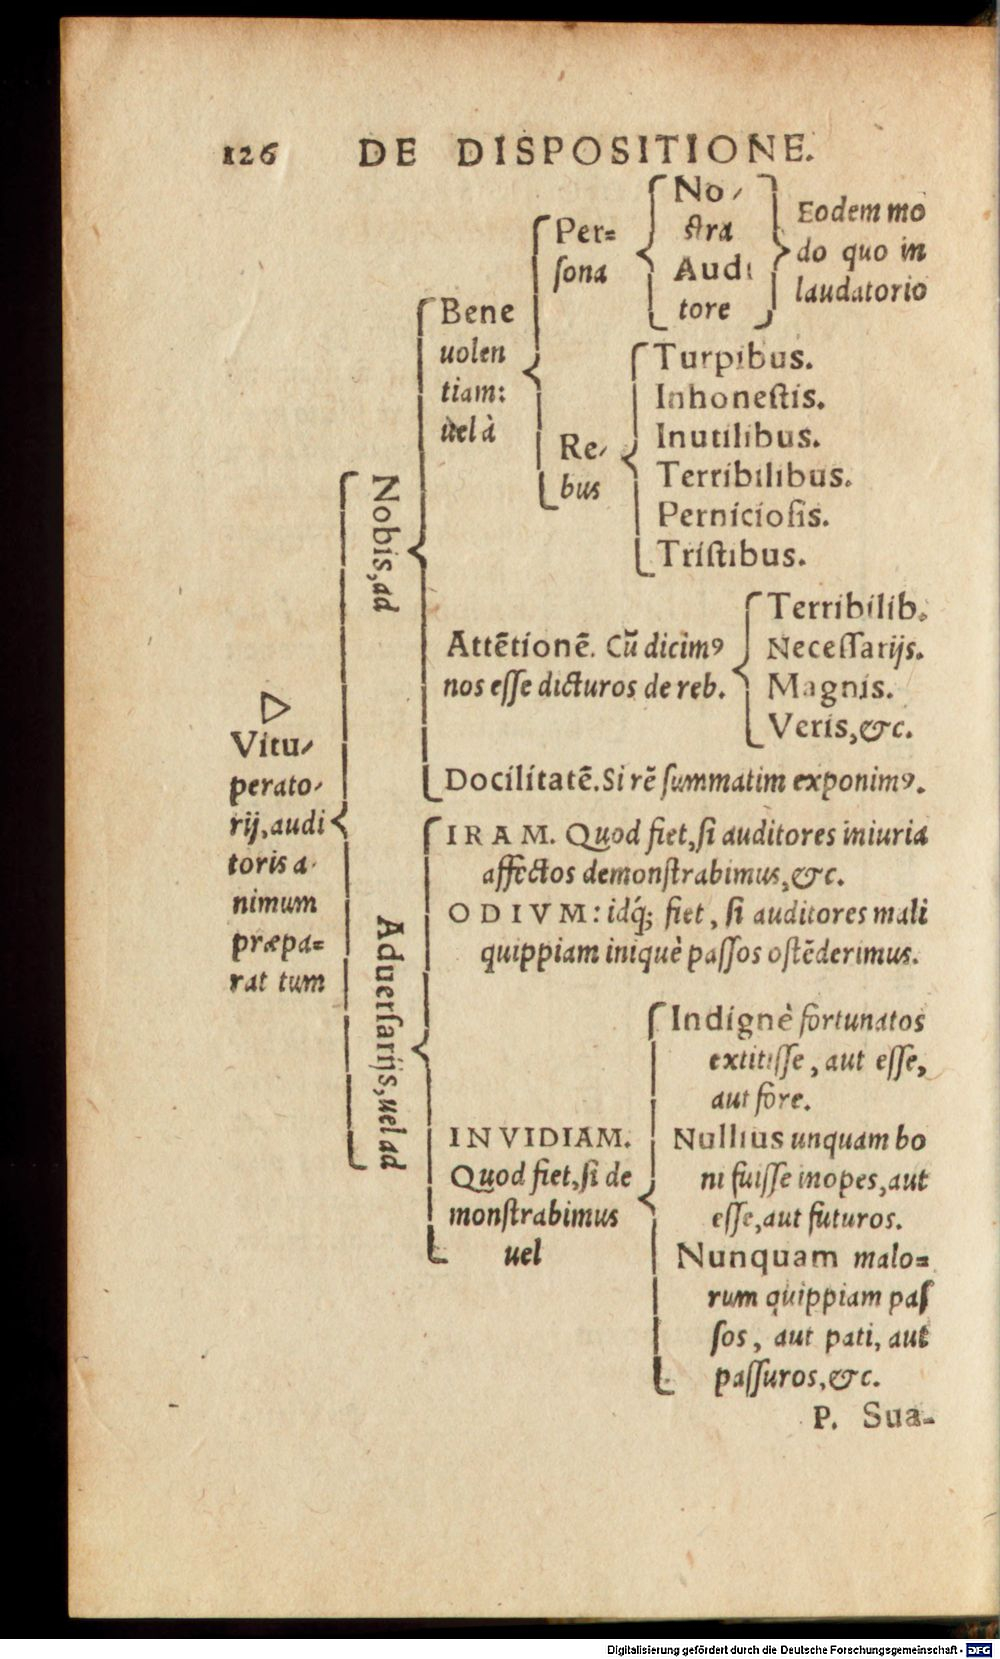 126 DE DISPOSITIONE.
▷
Vitu-
perato-
rij, audi
toris a-
nimum
præpa=
rat tum
Nobis, ad
Bene
uolen
tiam:
uel à
Per=
ſona
No-
ſtra
Audi
tore
Eodem mo
do quo in
laudatorio
Re-
bus
Turpibus.
Inhoneſtis.
Inutilibus.
Terribilibus.
Pernicioſis.
Triſtibus.
Attẽtionẽ. Cũ dicimꝰ
nos eſſe dicturos de reb.
Terribilib.
Neceſſarijs.
Magnis.
Veris, &c.
Docilitatẽ. Si rẽ ſummatim exponimꝰ.
Aduerſarijs, uel ad
IRAM. Quod fiet, ſi auditores iniuria
affectos demonſtrabimus, &c.
ODIVM: idq́; fiet, ſi auditores mali
quippiam iniquè paſſos oſtẽderimus.
INVIDIAM.
Quod fiet, ſi de
monſtrabimus
uel
Indignè fortunatos
extitiſſe, aut eſſe,
aut fore.
Nullius unquam bo
ni fuiſſe inopes, aut
eſſe, aut futuros.
Nunquam malo=
rum quippiam paſ
ſos, aut pati, aut
paſſuros, &c.
P. Sua-
Digitalisierung gefördert durch die Deutsche Forschungsgemeinschaft - DFG